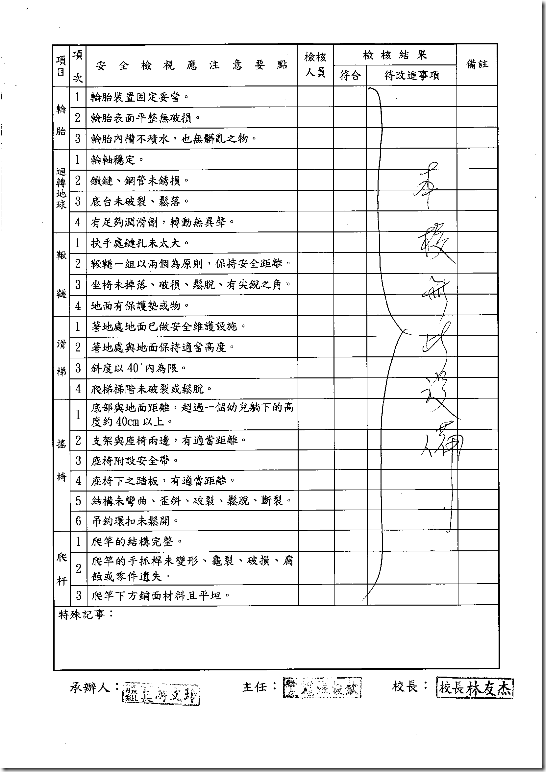 項目 項次 安全檢視應注意要點 檢核人員 檢核結果 備註
符合 待改進事項
輪胎
1 輪胎裝置固定妥當。
2 輪胎表面平整無破損。
3 輪胎內槽不積水，也無髒亂之物。
迴轉地球
1 輪軸穩定。
2 鐵鏈、鋼管未銹損。
3 底台未破裂、鬆落。
4 有足夠潤滑劑，轉動無異聲。
鞦韆
1 扶手處鏈孔未太大。
2 鞦韆一組以兩個為原則，保持安全距離。
3 坐椅未掉落、破損、鬆脫、有尖銳之角。
4 地面有保護墊或物。
滑梯
1 著地處地面已做安全維護設施。
2 著地處與地面保持適當高度。
3 斜度以40°內為限。
4 爬梯梯階未破裂或鬆脫。
搖椅
1 底部與地面距離，超過一個幼兒躺下的高
度約40cm以上。
2 支架與座椅兩邊，有適當距離。
3 座椅附設安全帶。
4 座椅下之踏板，有適當距離。
5 結構未彎曲、歪斜、破裂、鬆脫、斷裂。
6 吊鉤環扣未鬆開。
爬杆
1 爬竿的結構完整。
2 爬竿的手抓桿未變形、龜裂、破損、腐
蝕或零件遺失。
3 爬竿下方鋪面材料且平坦。
本校無此設備
特殊記事：
承辦人： 主任： 校長：校長林友杰